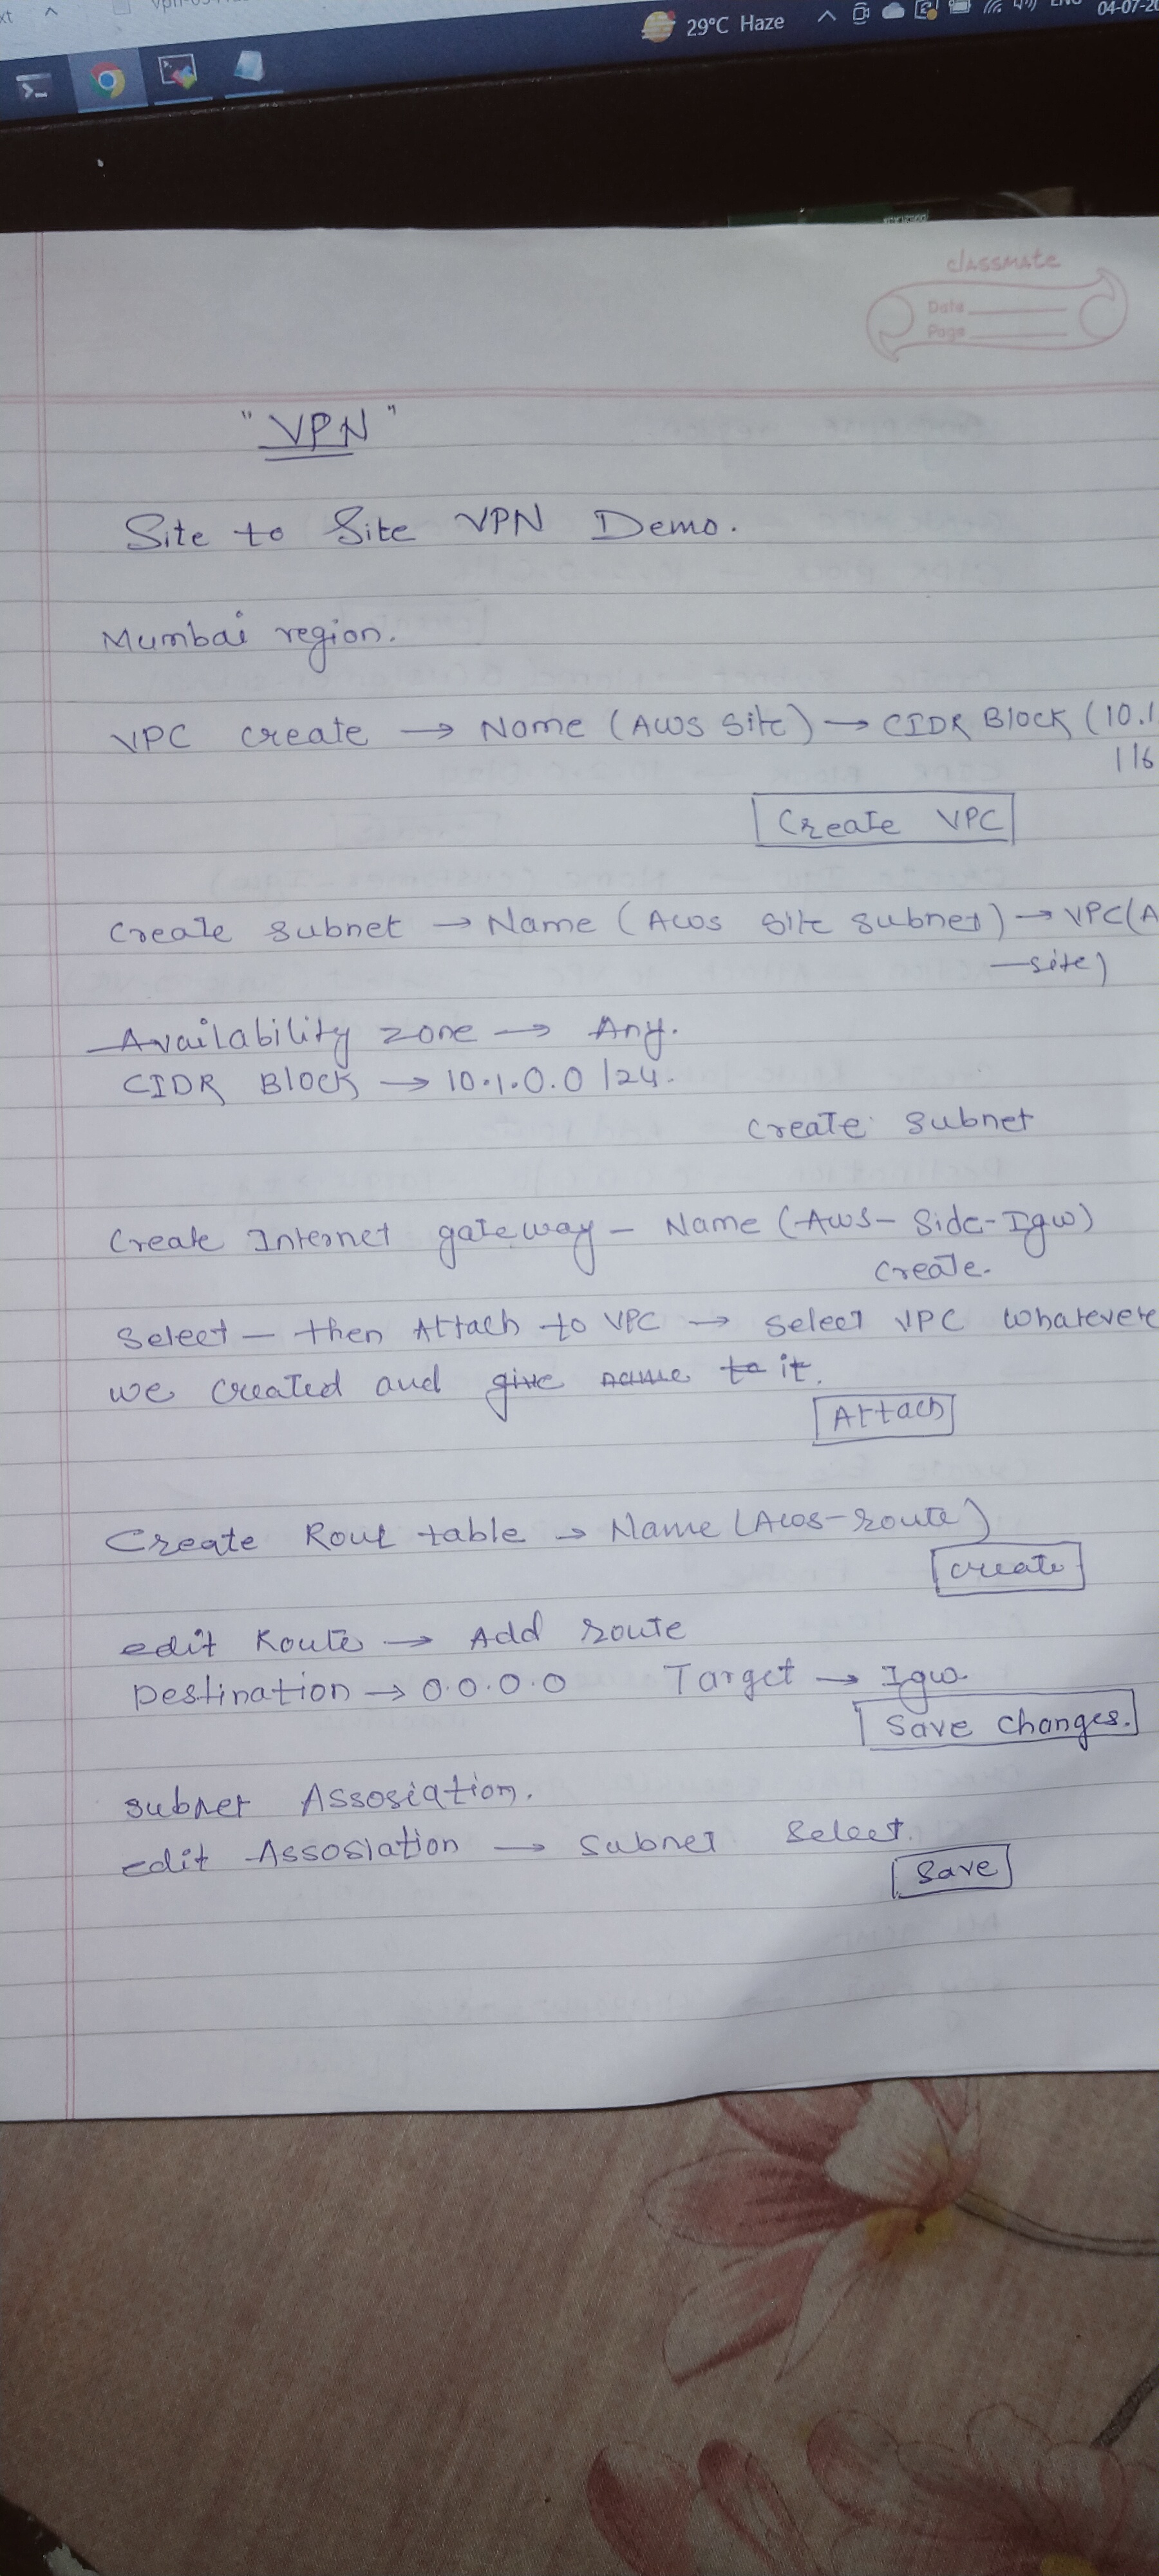 29°C Haze
04-07-20
classmate
Date
Page
"VPN"
Site to Site VPN Demo.
Mumbai region.
VPC create → Name (AWS Site) → CIDR Block (10.1
/16
Create VPC
Create subnet → Name (Aws site subnet) → VPC(A
-site)
Availability zone → Any.
CIDR Block → 10.1.0.0/24.
Create subnet
Create Internet gateway - Name (Aws-Side-Igw)
Create.
Select - then Attach to VPC → Select VPC whatevere
we created and give name to it.
Attach
Create Rout table → Name (Aws-route)
create
edit Route → Add route
Destination → 0.0.0.0 Target → Igw
Save changes.
subnet Assosiation.
edit Assosiation → Subnet Select.
Save